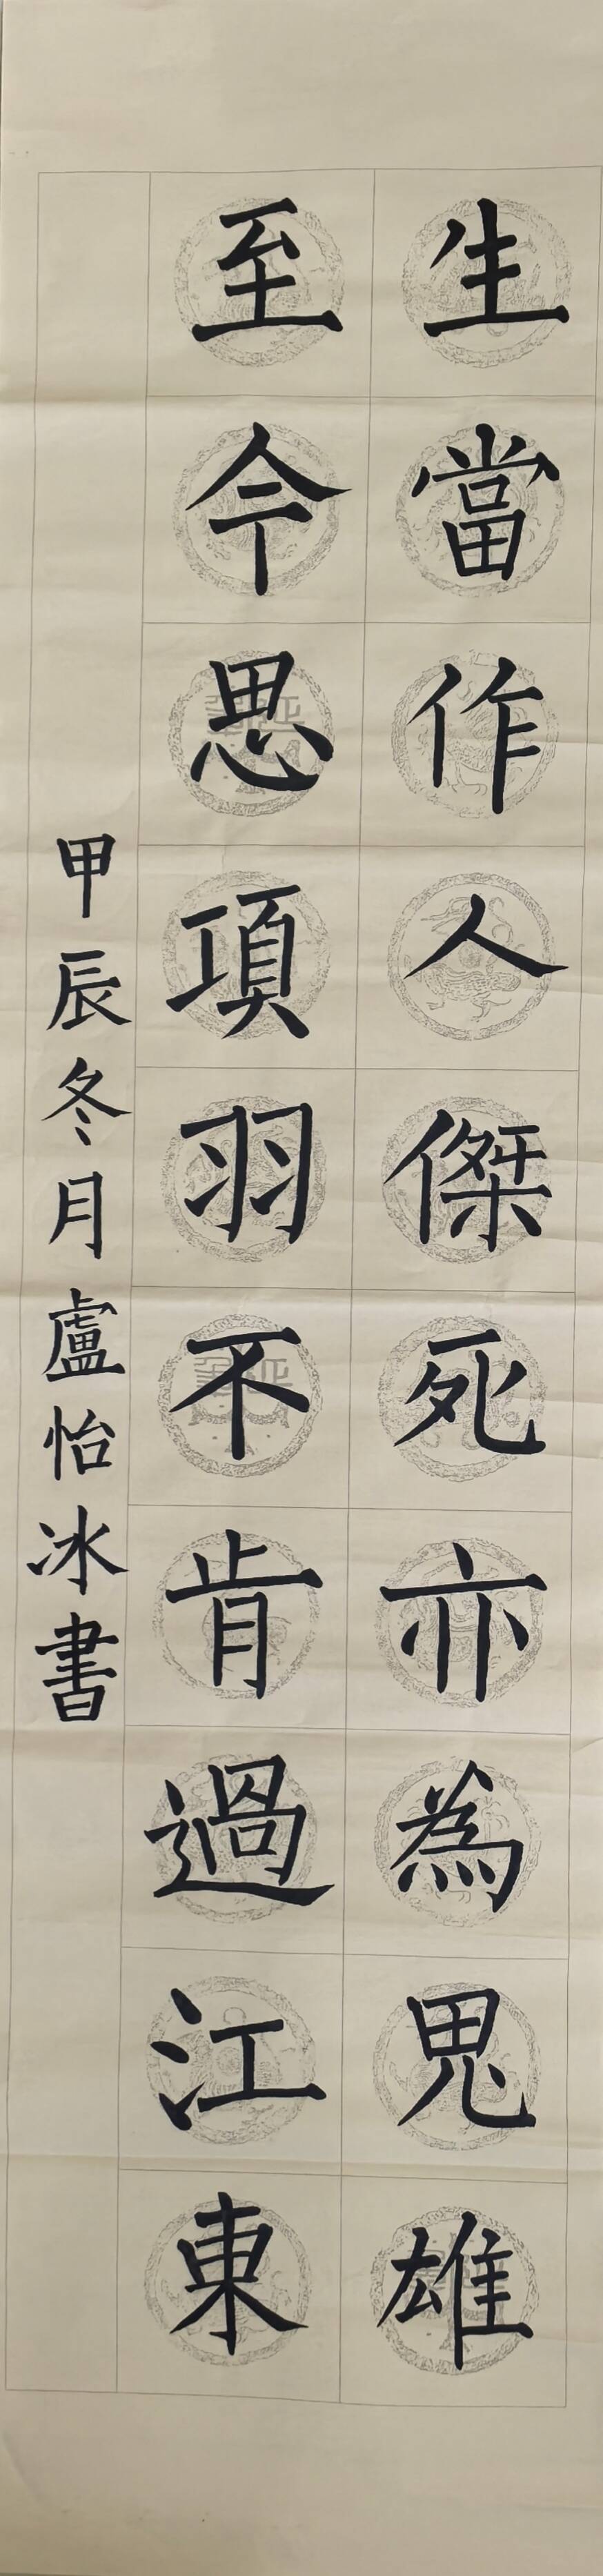 生當作人傑死亦為鬼雄
至今思項羽不肯過江東
甲辰冬月盧怡冰書